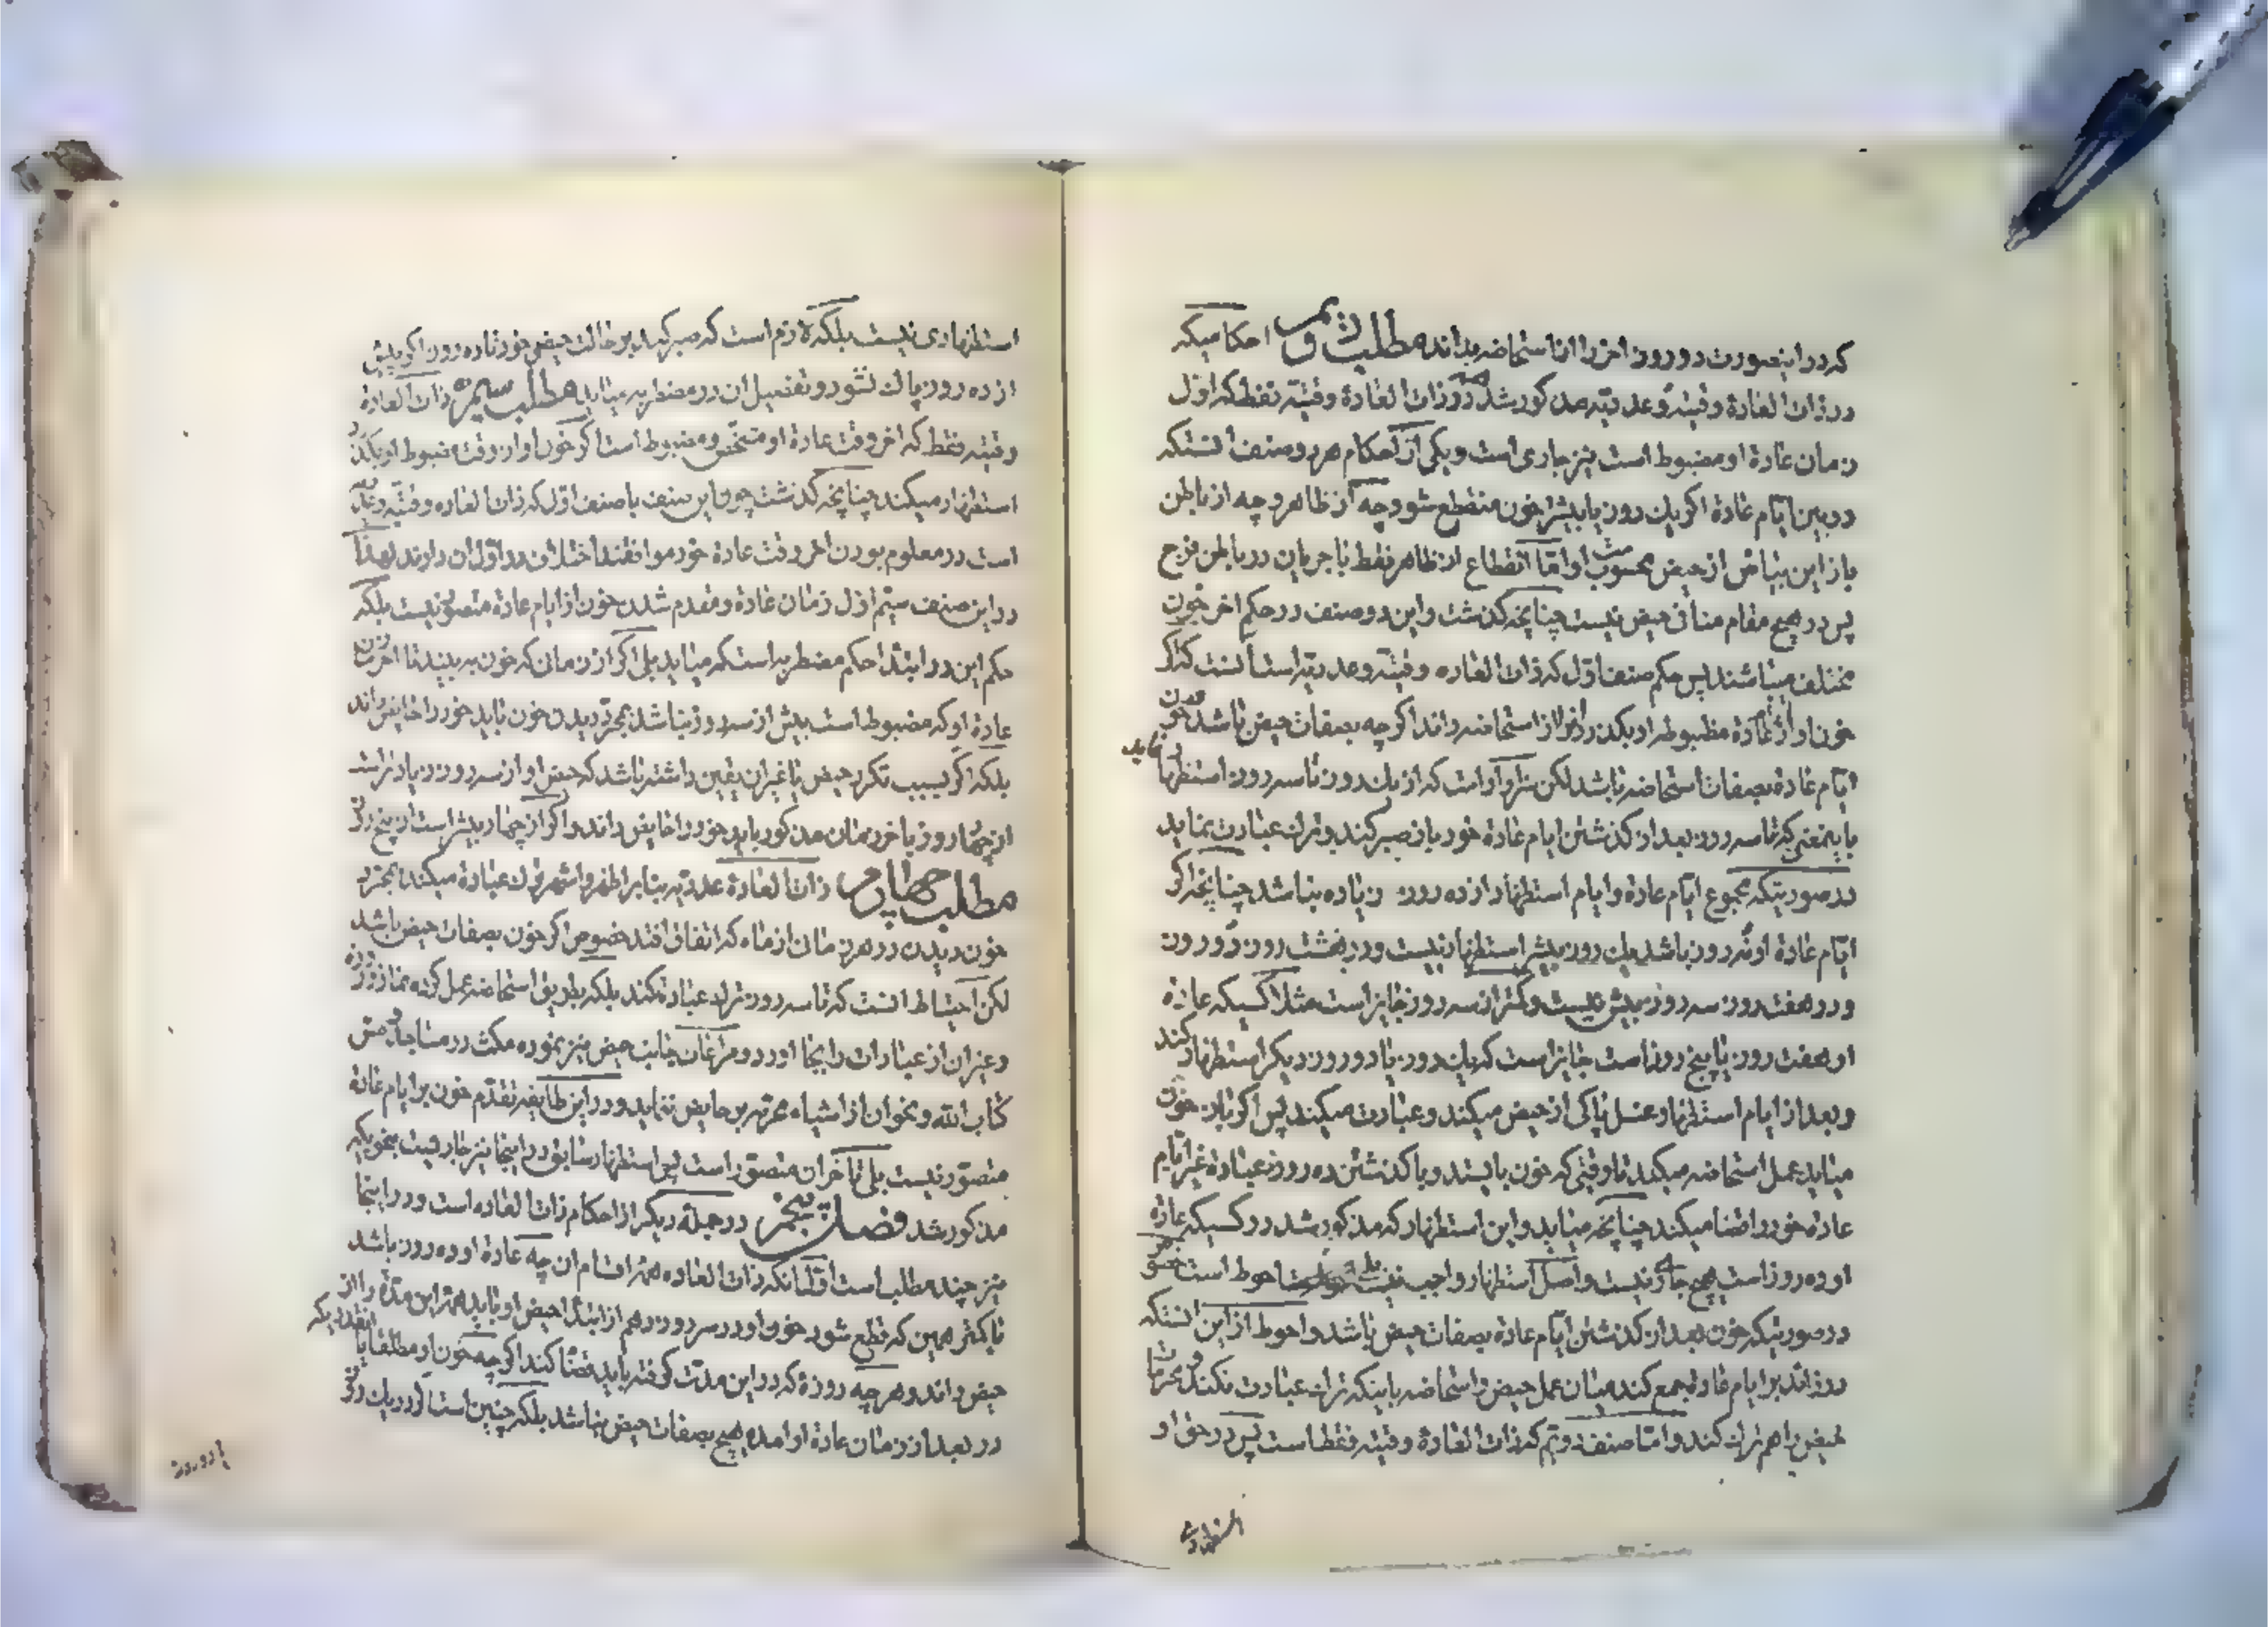 که در اینصورت دو روز اخر را از استحاضه بداند مطلب دویم احکامیکه
در ذات العادة وقتیه و عددیه مذکور شد در ذات العادة وقتیه فقط که اول
زمان عادة او مضبوط است نیز جاری است و یکی از احکام هر دو صنف انستکه
در بین ایام عادة اگر یك روز یا بیشتر خون منقطع شود چه از ظاهر و چه از باطن
باز این بیاض از حیض محسوب است و اما انقطاع از ظاهر فقط با جریان در باطن فرج
پس در هیچ مقام منافی حیض نیست چنانچه کذشت و این دو صنف در حکم اخر خون
مختلف میباشند پس حکم صنف اول که ذات العاده وقتیه و عددیه است انست که اگر
خون او از عادة مظبوطه او بکذرد از استحاضه داند اگر چه بصفات حیض باشد چون
ایام عادة بصفات استحاضه باشد لکن سزاوار است که از یك روز تا سه روز استظهار نماید
باینمعنی که تا سه روز بعد از کذشتن ایام عادة خود باز صبر کند و ترك عبادت نماید
در صورتیکه مجموع ایام عادة و ایام استظهار از ده روز زیاده نباشد چنانچه اگر
ایام عادة او نه روز باشد یك روز بیشتر استظهار نیست و در هشت روز دو روز
و در هفت روز سه روز بیش نیست و کمتر از سه روز جایز است مثلا کسیکه عادة
او هفت روز یا پنج روز است جایز است که یك روز یا دو روز دیگر استظهار کند
و بعد از ایام استظهار غسل پاکی از حیض میکند و عبادت میکند پس اگر باز خون
میاید عمل استحاضه میکند تا وقتی که خون بایستد و با کذشتن ده روز عبادة غیر ایام
عادة خود را قضا میکند چنانچه میاید و این استظهار که مذکور شد در کسیکه عادة
او ده روز است هیچ جاری نیست و اصل استظهار واجب نیست بلی احوط است خصوصا
در صورتیکه خون بعد از کذشتن ایام عادة بصفات حیض باشد و احوط از این انستکه
روز زائد بر ایام عادة جمع کند میان عمل حیض و استحاضه باینکه ترك عبادت نکند و محرمات
حیض را هم ترك کند و اما صنف دویم که ذات العادة وقتیه فقط است پس در حق او
استظهاری
استظهاری نیست بلکه لازم است که صبر کند بر حالت حیض خود تا ده روز اگر پیش
از ده روز پاك نشود و تفصیل ان در مضطربه میاید مطلب سیم ذات العادة
وقتیه فقط که اخر وقت عادة او مشخص و مضبوط است اگر خون او از وقت مضبوط او بکذرد
استظهار میکند چنانچه کذشت چون این صنف با صنف اول که ذات العاده وقتیه و عددیه
است در معلوم بودن اخر وقت عادة خود موافقند اختلاف در اول ان دارند لهذا
در این صنف سیم اول زمان عادة و مقدم شدن خون از ایام عادة متصور نیست بلکه
حکم این در ابتدا حکم مضطربه است که میاید بلی اگر از زمان که خون به بیند تا اخر زمان
عادة او که مضبوط است بیش از سه روز نباشد بمجرد دیدن خون باید خود را حایض داند
بلکه اگر بسبب تکرر حیض یا غیر ان یقین داشته باشد که حیض او از سه روز زیاد تر است
از چهار روز با خر زمان مذکور باید خود را حایض داند و اگر از چهار بیشتر است از پنج روز
مطلب چهارم ذات العادة عددیه بنابر اظهر و اشهر ترك عبادة میکند بمجرد
خون دیدن در هر زمان از ماه که اتفاق افتد خصوص اگر خون بصفات حیض باشد
لکن احتیاط انست که تا سه روز ترك عبادة نکند بلکه بطریق استحاضه عمل کرده نماز و روزه
و غیر ان از عبادات را بجا اورد و مراعات جانب حیض نیز نموده مکث در مساجد و مس
کتاب الله و نحو ان از اشیاء محرمه بر حایض ننماید و در این طایفه تقدم خون بر ایام عادة
متصور نیست بلی تاخر ان متصور است پس استظهار سابق در اینجا نیز جاریست بنحویکه
مذکور شد فصل پنجم در جملۀ دیگر از احکام ذات العاده است و در اینجا
نیز چند مطلب است اول انکه ذات العاده همۀ اقسام ان چه عادة او ده روز باشد
یا کمتر همین که قطع شود خون او در سر روز دهم از ابتدا حیض او باید همۀ این مدة را از
حیض داند و هر چه روزة که در این مدت کرفته باید قضا کند اگر چه خون او مطلقا یا انقدریکه
در بعد از زمان عادة او امده هیچ بصفات حیض نباشد بلکه چنین است اگر در یك روز
یا دو روز